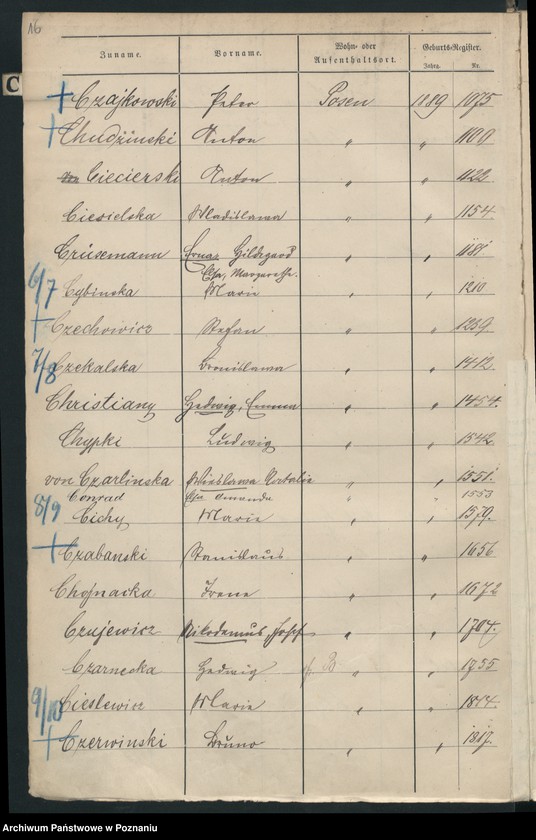 16
Zuname. Vorname. Wohn- oder Aufenthaltsort. Geburts-Register. Jahrg. Nr.
C
Czajkowski Peter Posen 1889 1075
Chudziński Anton " " 1109
von Ciecierski Anton " " 1122
Ciesielska Wladislawa " " 1154
Crüsemann Erna Hildegard " " 1181
Elsa, Margarethe.
6/7 Cybinska Marie " " 1210
Czechowicz Stefan " " 1239
7/8 Czekalska Bronislawa " " 1412
Christiany Hedwig, Emma " " 1454
Chypki Ludwig " " 1542
von Czarlinska Wieslawa Natalie " " 1551
Conrad Elsa Amanda " " 1553
8/9 Cichy Marie " " 1579
Czabanski Stanislaus " " 1656
Chojnacka Irene " " 1672
Czujewicz Nikodemus, Josef " " 1704
Czarnecka Hedwig " " 1755
9/10 Cieslewicz Marie " " 1844
Czerwinski Bruno " " 1817
Archiwum Państwowe w Poznaniu